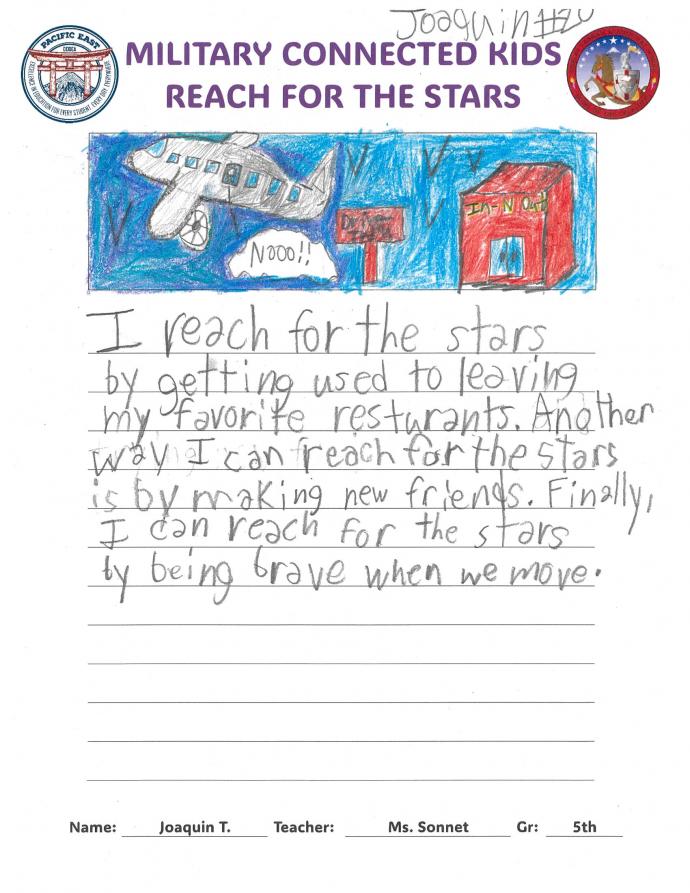 Joaquin #20
PACIFIC EAST
DODEA
EXCELLENCE IN EDUCATION FOR EVERY STUDENT, EVERY DAY, EVERYWHERE
MILITARY CONNECTED KIDS
REACH FOR THE STARS
In-N-Out
Nooo!!
I reach for the stars
by getting used to leaving
my favorite resturants. Another
way I can reach for the stars
is by making new friends. Finally,
I can reach for the stars
by being brave when we move.
Name: Joaquin T. Teacher: Ms. Sonnet Gr: 5th